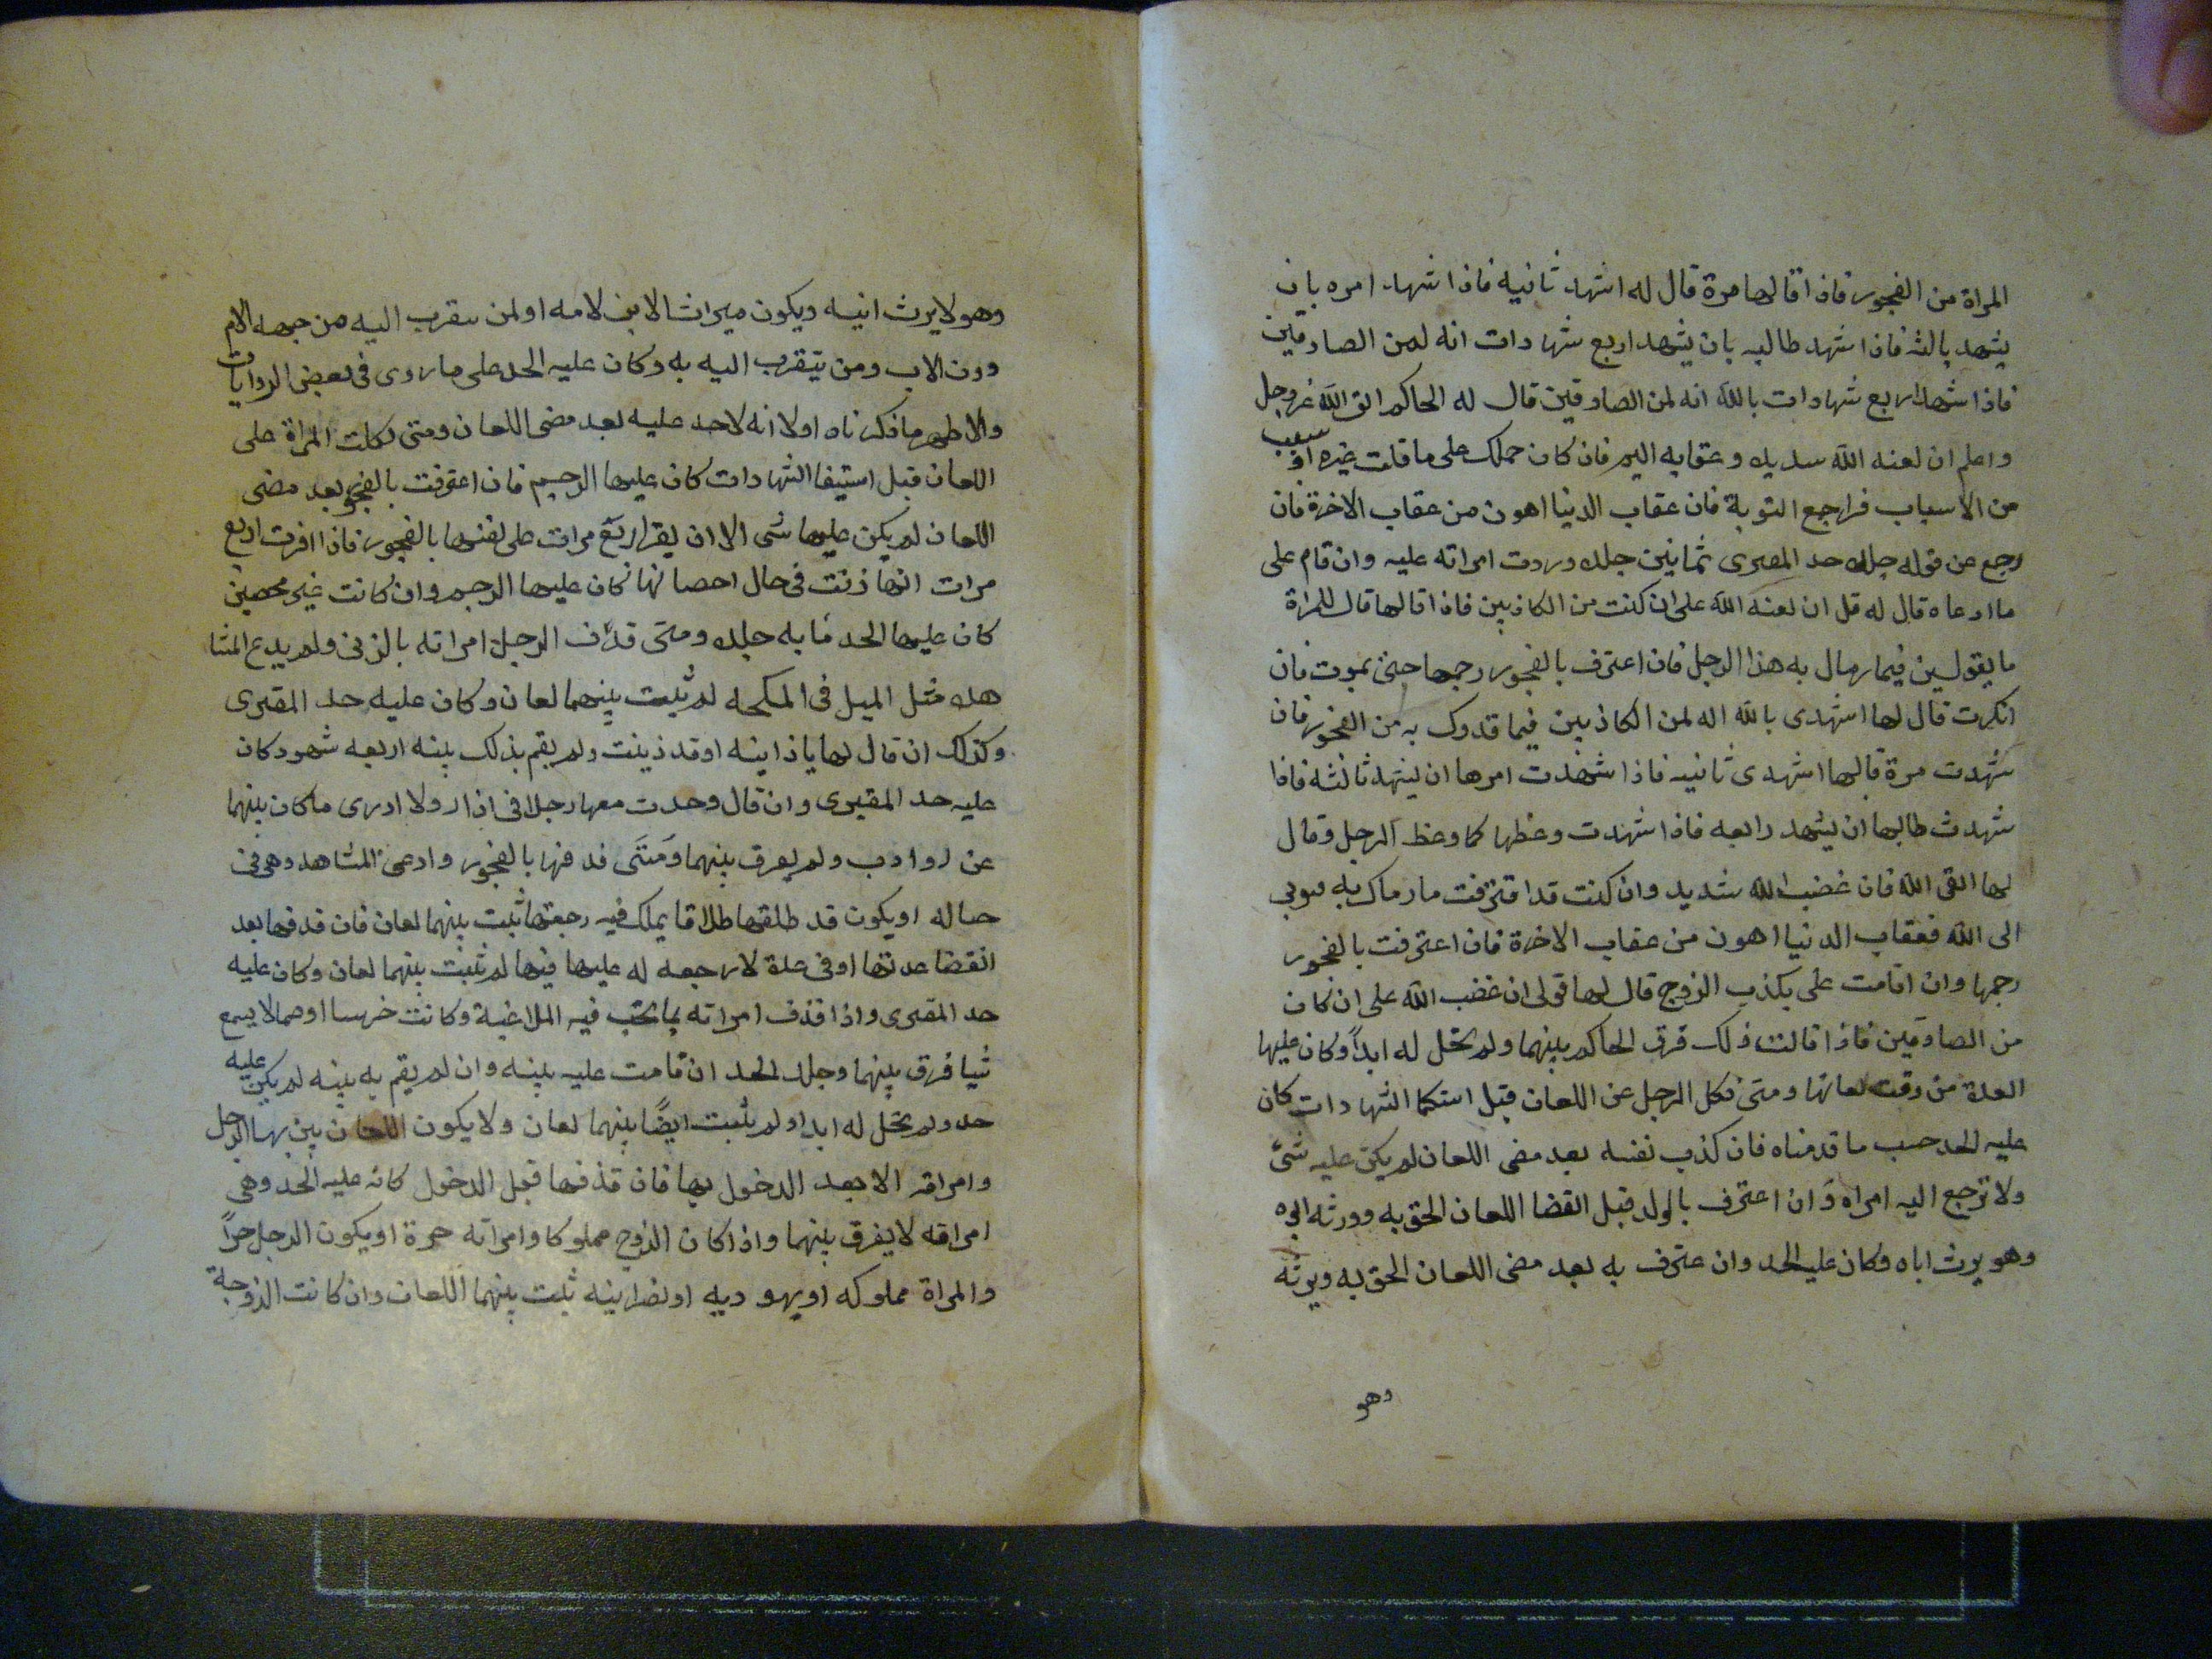 المراة من الفجور فاذا قالها مرة قال له اشهد ثانيه فاذا شهد امره بان
يشهد ثالثه فاذا شهد طالبه بان يشهد اربع شهادات انه لمن الصادقين
فاذا شهد اربع شهادات بالله انه لمن الصادقين قال له الحاكم اتق الله عز وجل
واعلم ان لعنه الله شديد وعقابه اليم فان كان حملك على ما قلت غيره او سبب
من الاسباب فراجع التوبة فان عقاب الدنيا اهون من عقاب الاخرة فان
رجع عن قوله جلد حد المفترى ثمانين جلده وردت امراته عليه وان قام على
ما ادعاه قال له قل ان لعنه الله على ان كنت من الكاذبين فاذا قالها قال للمراة
ما يقولين فيما رماك به هذا الرجل فان اعترف بالفجور رجمها حتى يموت فان
انكرت قال لها اشهدى بالله انه لمن الكاذبين فيما قدوك به من الفجور فان
شهدت مرة قالها اشهدى ثانيه فاذا شهدت امرها ان ليشهد ثالثه فاذا
شهدت طالبها ان يشهد رابعه فاذا شهدت وعظها كما وعظ الرجل وقال
لها اتقى الله فان غضب الله شديد وان كنت قد اقترفت ما رماك به فتوبى
الى الله فعقاب الدنيا اهون من عقاب الاخرة فان اعترفت بالفجور
رجمها وان اقامت على يكذب الزوج قال لها قولى ان غضب الله على ان كان
من الصادقين فاذا قالت ذلك فرق الحاكم بينهما ولم تحل له ابداً وكان عليها
العدة من وقت لعانها ومتى نكل الرجل عن اللعان قبل استكما الشهادات كان
عليه الحد حسب ما قدمناه فان كذب نفسه بعد مضى اللعان لم يكن عليه شىً
ولا ترجع اليه امراه وان اعترف بالولد قبل انقضا اللعان الحق به وورثه ابوه
وهو يرث اباه وكان عليه الحد وان عترف به بعد مضى اللعان الحق به ويرثه
وهو
وهو لا يرث ابيه ويكون ميراث الابن لامه او لمن يتقرب اليه من جهه الام
دون الاب ومن يتقرب اليه به وكان عليه الحد على ما روى فى بعض الروايات
والاظهر ما ذكرناه اولا انه لا حد عليه بعد مضى اللعان ومتى نكلت المراة على
اللعان قبل استيفا الشهادات كان عليها الرجم فان اعترفت بالفجور بعد مضى
اللعان لم يكن عليها شى الا ان يقر اربع مرات على نفسها بالفجور فاذا اقرت اربع
مرات انها زنت فى حال احصانها كان عليها الرجم وان كانت غير محصين
كان عليها الحد مايه جلده ومتى قذف الرجل امراته بالزنى ولم يدع المشا
هده مثل الميل فى المكحله لم يثبت بينهما لعان وكان عليه حد المفترى
وكذلك ان قال لها يا زانيه او قد زينت ولم يقم بذلك بينه اربعه شهود كان
عليه حد المفترى وان قال وجدت معها رجلا فى ازار ولا ادرى ما كان بينهما
عزر وادب ولم يفرق بينهما ومَتَى قدفها بالفجور وادعى المشاهده وهى فى
حباله او يكون قد طلقها طلاقا يملك فيه رجعتها ثبت بينهما لعان فان قدفها بعد
انقضا عدتها او فى عدة لا رجعه له عليها فيها لم يثبت بينهما لعان وكان عليه
حد المفترى واذا قذف امراته بما يحب فيه الملاعنة وكانت خرسا او صما لا يسمع
شيا فرق بينهما وجلد الحد ان قامت عليه بينه وان لم يقم به بينه لم يكن عليه
حد ولم تحل له ابدا ولم يثبت ايضًا بينهما لعان ولا يكون اللعان بين الرجل
وامراته الا بعد الدخول بها فان قذفها قبل الدخول كان عليه الحد وهى
امراته لا يفرق بينهما واذا كان الزوج مملوكا وامراته حرة او يكون الرجل حراً
والمراة مملوكه او يهوديه او نصرانيه ثبت بينهما اللعان وان كانت الزوجة